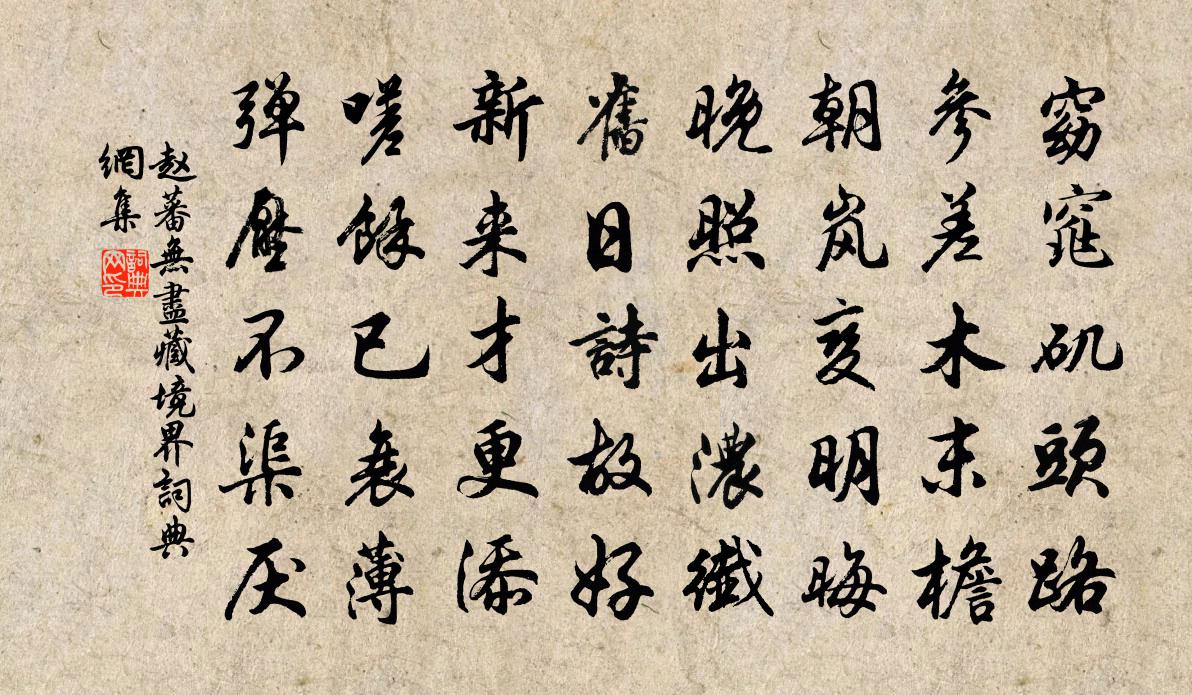 窈窕矶頭路
參差木末檐
朝岚变明晦
晚照出濃纖
舊日詩故好
新来才更添
嗟餘已衰薄
弹壓不渠厌
赵蕃無盡藏境界詞典
網集
詞典
网印